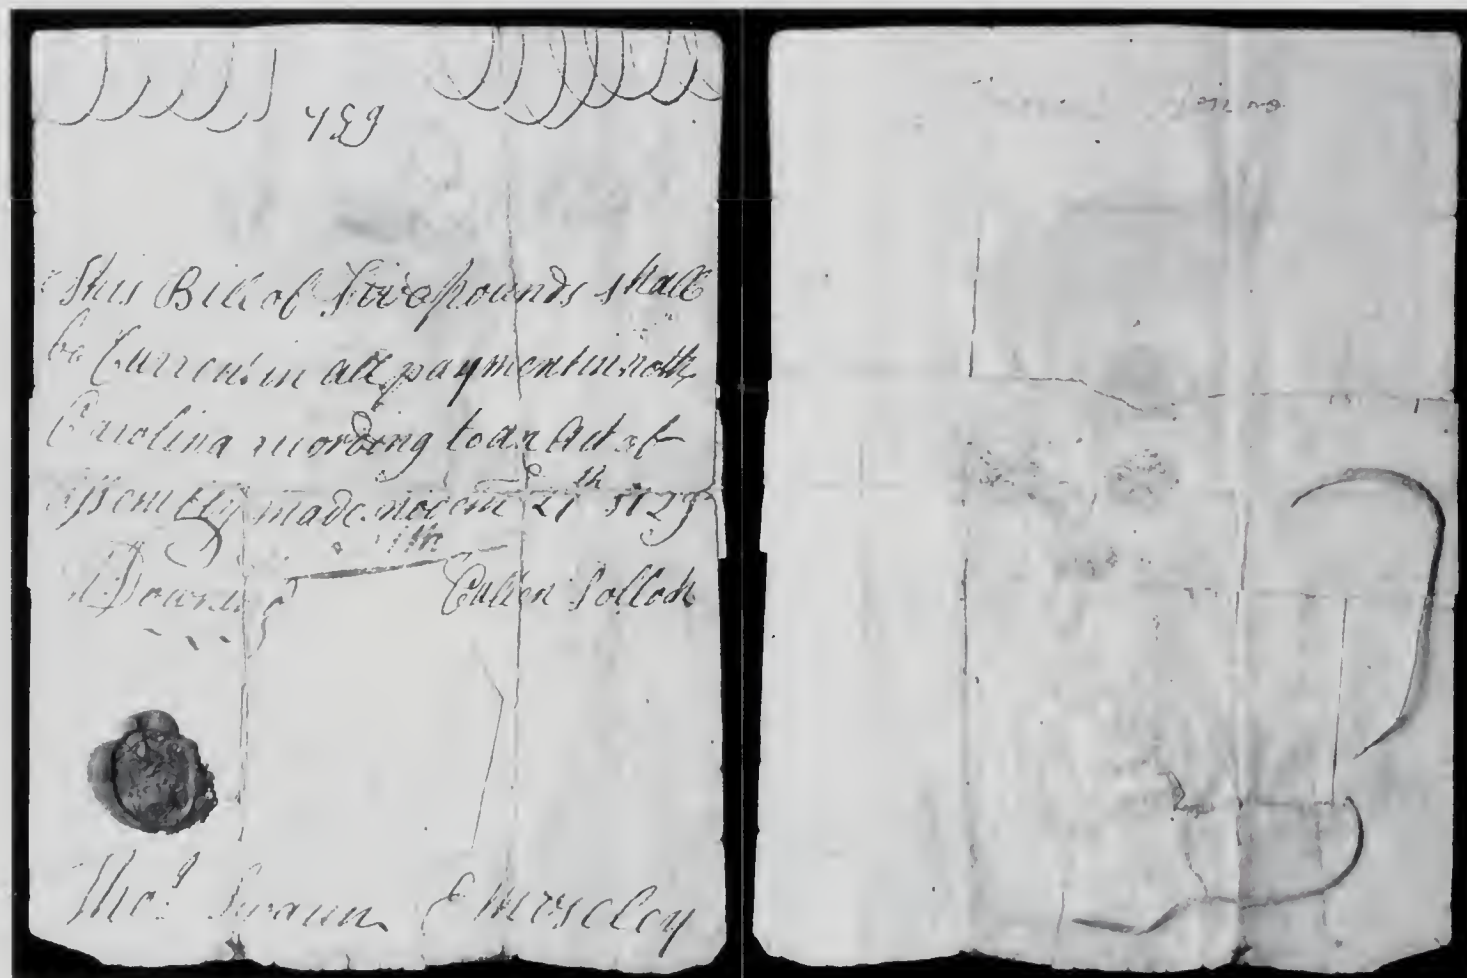 This Bill of Five pounds shall
be Current in all payment in noth
Carolina according to an Act of
assembly made novem 27th 1729
Downing Cullen Pollock
Tho.s Swann E Moseley